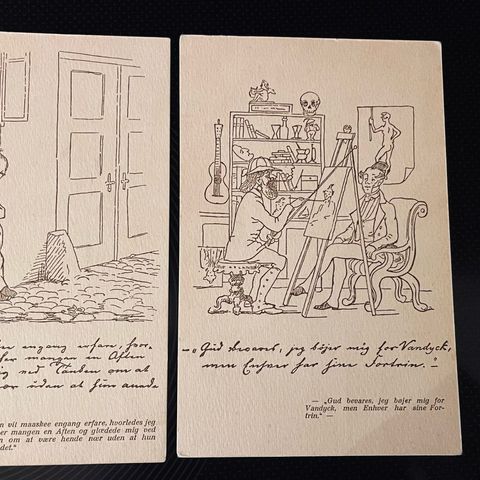 engang erfare, hvor-
her mangen en Aften
ved Tanken om at
uden at hun anede
n vil maaskee engang erfare, hvorledes jeg
er mangen en Aften og glædede mig ved
n om at være hende nær uden at hun
det."
— „Gud bevares, jeg bøjer mig for Vandyck,
men Enhver har sine Fortrin." —
— „Gud bevares, jeg bøjer mig for
Vandyck, men Enhver har sine For-
trin." —